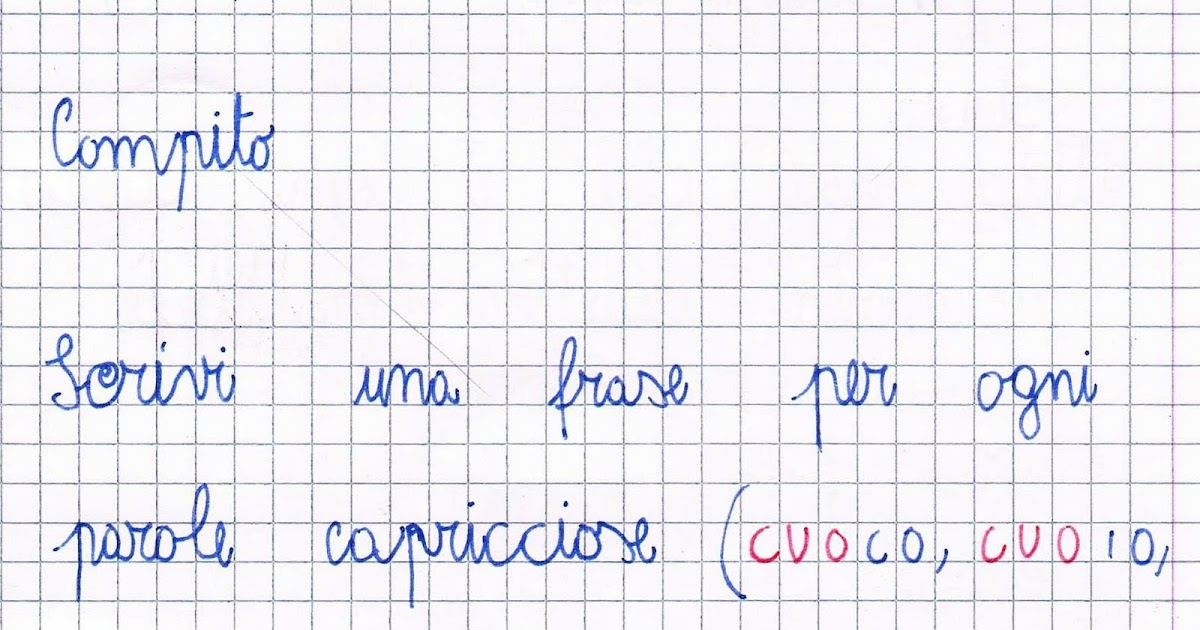 Compito
Scrivi una frase per ogni
parole capricciose (CUOCO, CUOIO,